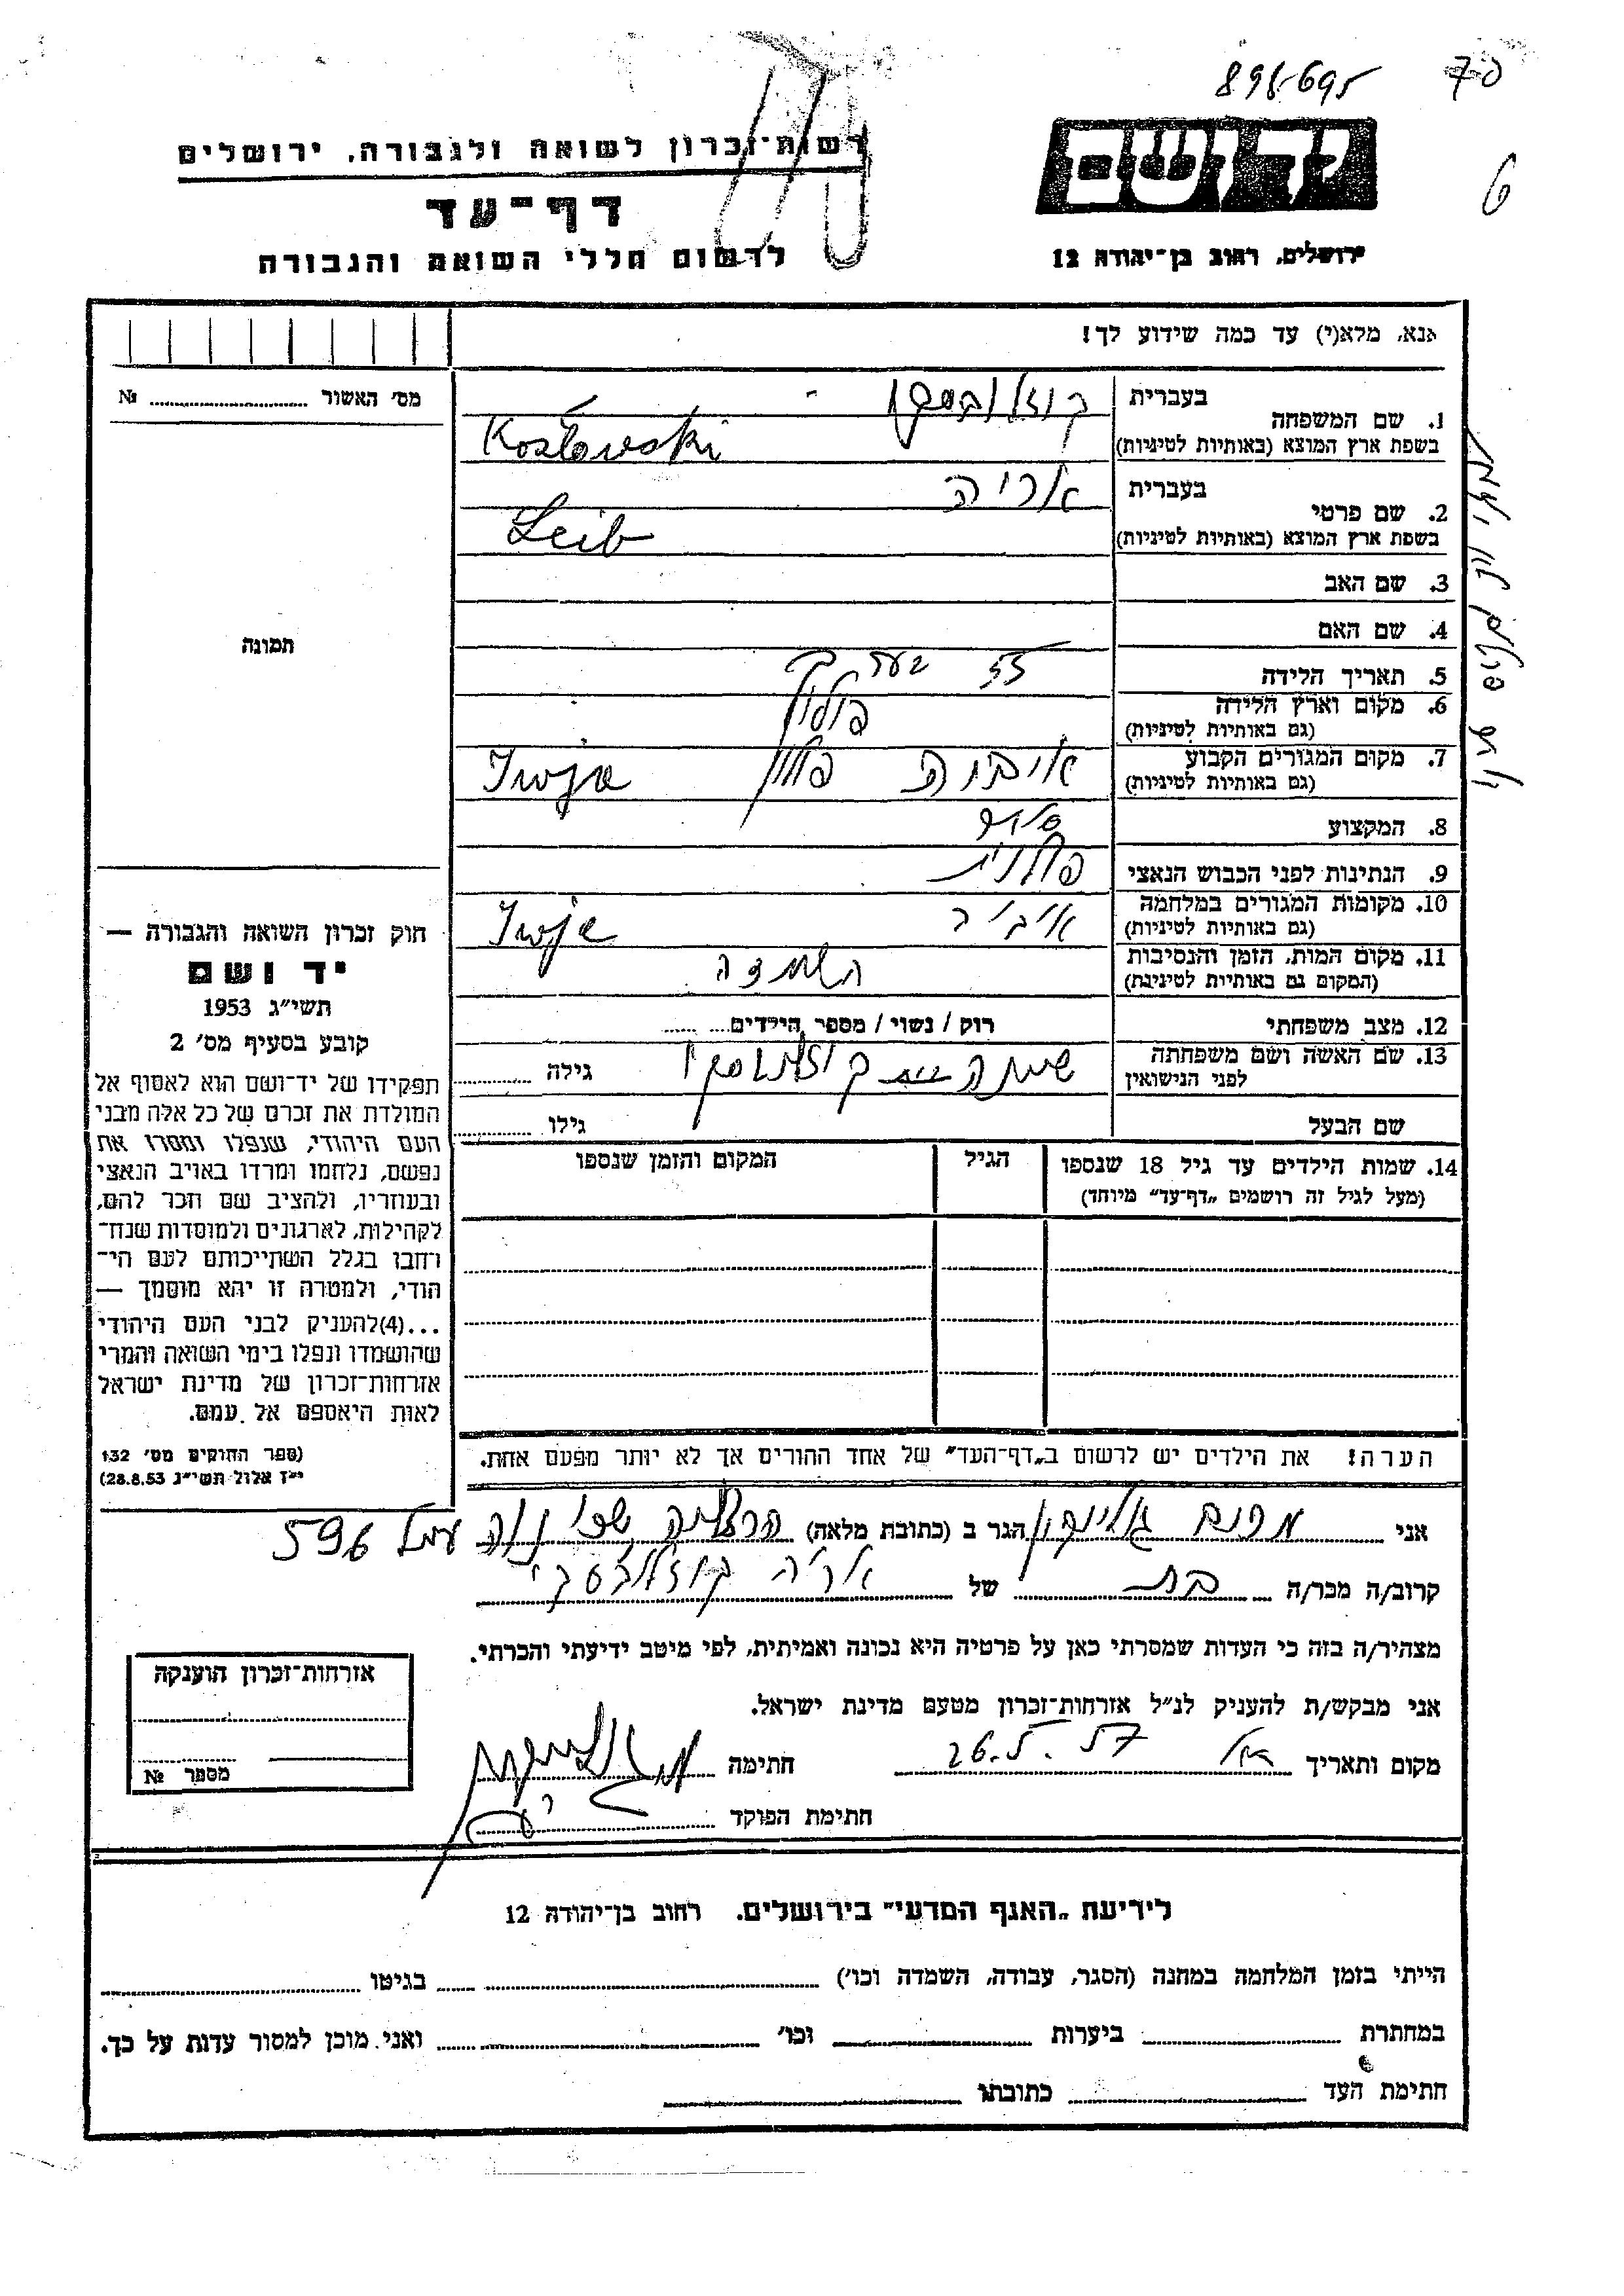 895695
70
6
רשות־זכרון לשואה ולגבורה, ירושלים
יד ושם
דף־עד
ירושלים, רחוב בן־יהודה 12
לרשום חללי השואה והגבורה
אנא, מלא(י) עד כמה שידוע לך!
מס׳ האשור № 
1. שם המשפחה בעברית קוזלובסקי
בשפת ארץ המוצא (באותיות לטיניות) Kozłowski
2. שם פרטי בעברית אריה
בשפת ארץ המוצא (באותיות לטיניות) Leib
3. שם האב
4. שם האם
תמונה
5. תאריך הלידה 55
6. מקום וארץ הלידה פולין
(גם באותיות לטיניות)
7. מקום המגורים הקבוע פולין Iwje
(גם באותיות לטיניות)
8. המקצוע סוחר
9. הנתינות לפני הכבוש הנאצי פולנית
10. מקומות המגורים במלחמה Iwje
(גם באותיות לטיניות)
11. מקום המות, הזמן והנסיבות השמדה
(המקום גם באותיות לטיניות)
12. מצב משפחתי רוק / נשוי / מספר הילדים
13. שם האשה ושם משפחתה קוזלובסקי גילה
לפני הנישואין
שם הבעל גילו
14. שמות הילדים עד גיל 18 שנספו הגיל המקום והזמן שנספו
(מעל לגיל זה רושמים „דף־עד” מיוחד)
חוק זכרון השואה והגבורה —
יד ושם
תשי״ג 1953
קובע בסעיף מס׳ 2
תפקידו של יד־ושם הוא לאסוף אל
המולדת את זכרם של כל אלה מבני
העם היהודי, שנפלו ומסרו את
נפשם, נלחמו ומרדו באויב הנאצי
ובעוזריו, ולהציב שם וזכר להם,
לקהילות, לארגונים ולמוסדות שנח־
רבו בגלל השתייכותם לעם הי־
הודי, ולמטרה זו יהא מוסמך —
...(4)להעניק לבני העם היהודי
שהושמדו ונפלו בימי השואה והמרי
אזרחות־זכרון של מדינת ישראל
לאות היאספם אל עמם.
(ספר החוקים מס׳ 132
י״ז אלול תשי״ג 28.8.53)
הערה! את הילדים יש לרשום ב„דף־העד” של אחד ההורים אך לא יותר מפעם אחת.
אני הגר ב (כתובת מלאה) הרצליה 596
קרוב/ה מכר/ה בת של אריה קוזלובסקי
מצהיר/ה בזה כי העדות שמסרתי כאן על פרטיה היא נכונה ואמיתית, לפי מיטב ידיעתי והכרתי.
אני מבקש/ת להעניק לנ״ל אזרחות־זכרון מטעם מדינת ישראל.
מקום ותאריך 26.5.57 חתימה
חתימת הפוקד
אזרחות־זכרון הוענקה
מספר №
לידיעת „האגף המדעי” בירושלים, רחוב בן־יהודה 12
הייתי בזמן המלחמה במחנה (הסגר, עבודה, השמדה וכו׳) בגיטו
במחתרת ביערות וכו׳ ואני מוכן למסור עדות על כך.
חתימת העד כתובתו